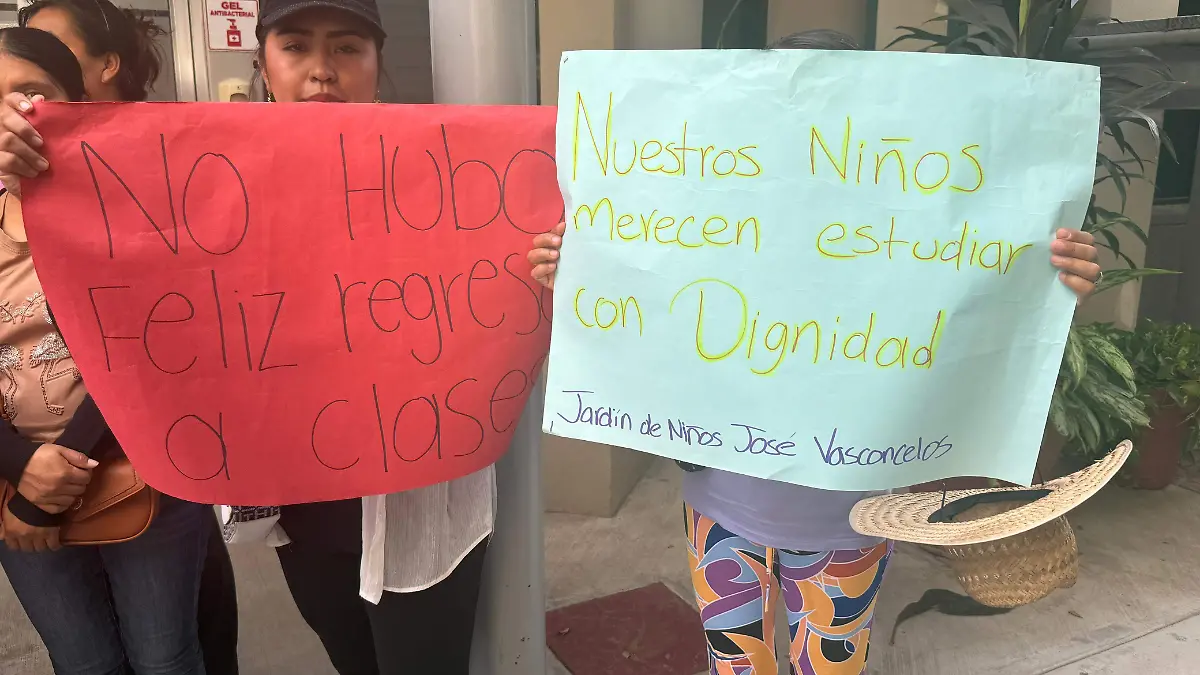 GEL
ANTIBACTERIAL
No Hubo
Feliz regreso
a clases
Nuestros Niños
merecen estudiar
con Dignidad
Jardín de Niños José Vasconcelos